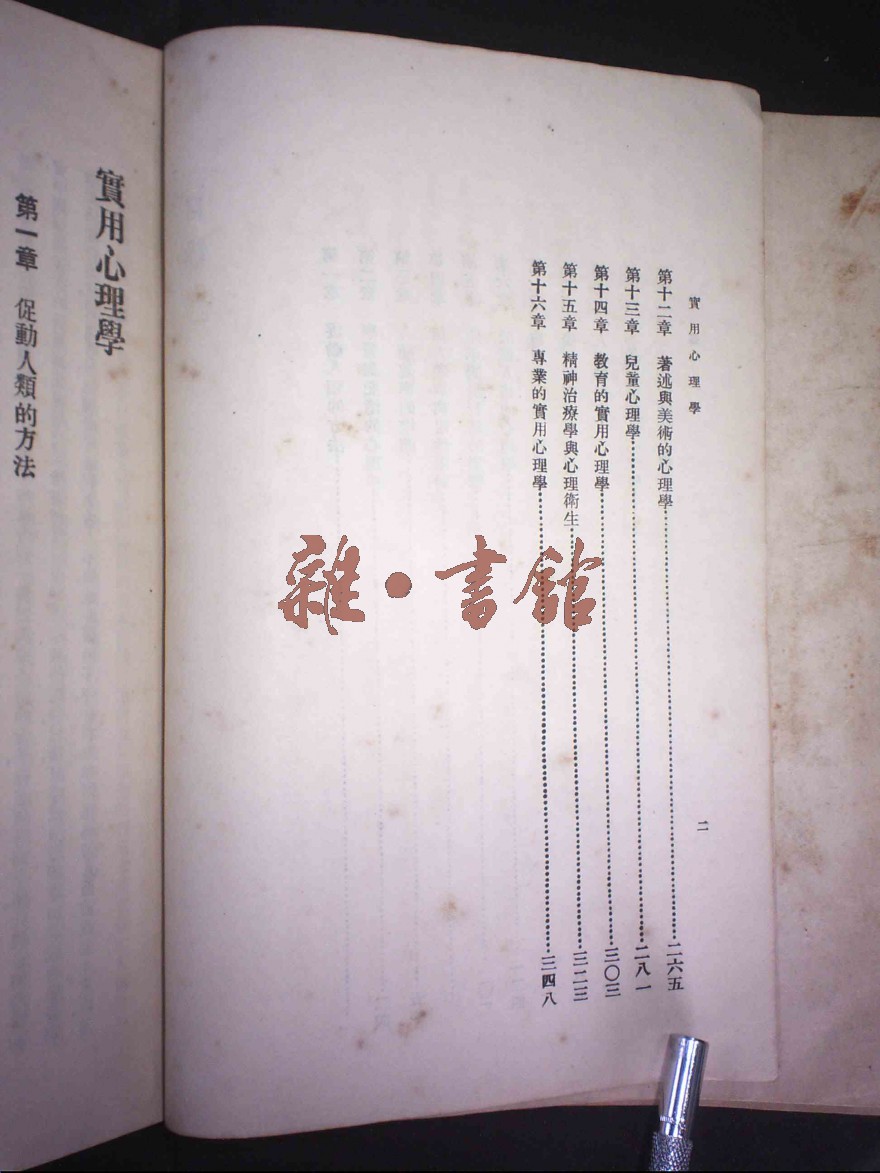 實用心理學
第十二章 著述與美術的心理學⋯⋯二六五
第十三章 兒童心理學⋯⋯二八一
第十四章 教育的實用心理學⋯⋯三〇三
第十五章 精神治療學與心理衛生⋯⋯三二三
第十六章 專業的實用心理學⋯⋯三四八
二
實用心理學
第一章 促動人類的方法
雜·書館